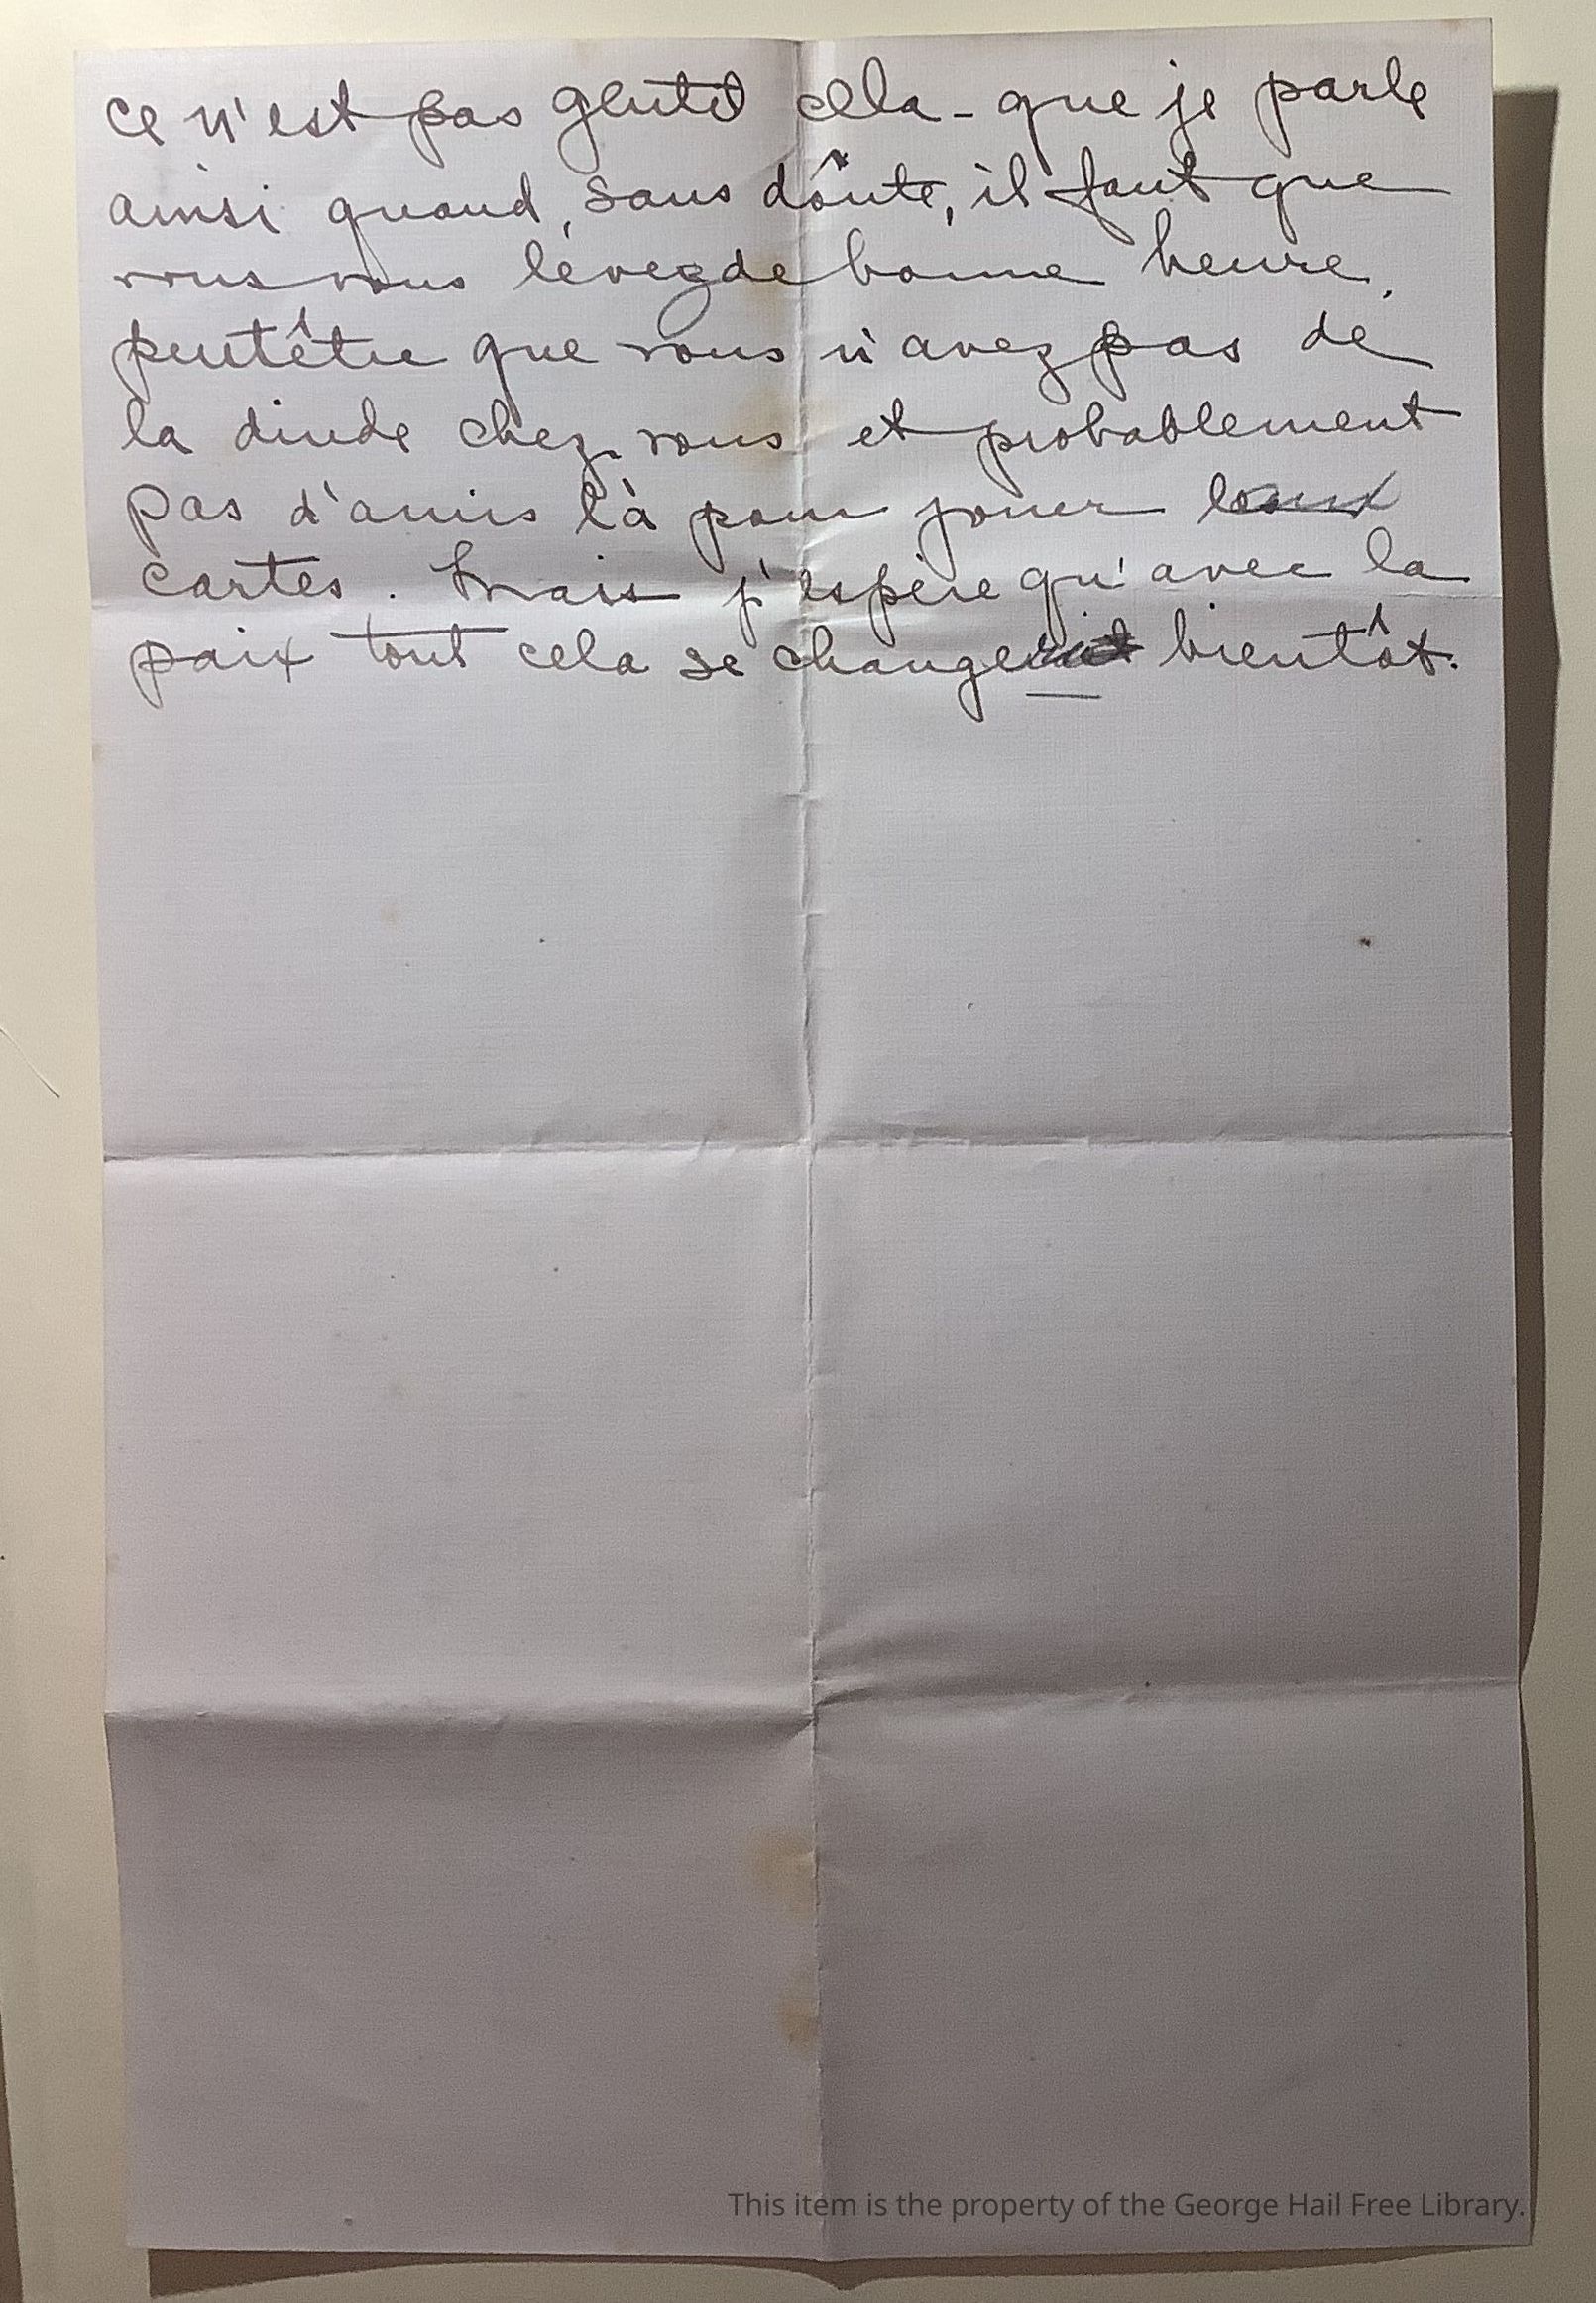 ce n'est pas gentil cela - que je parle
ainsi quand, sans doûte, il faut que
vous vous lévez de bonne heure,
peutêtre que vous n'avez pas de
la dinde chez vous et probablement
pas d'amis là pour jouer
cartes. Mais j'espère qu'avec la
paix tout cela se change bientôt.
This item is the property of the George Hail Free Library.